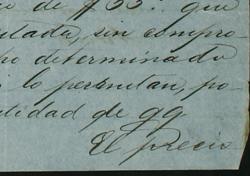 de $ 55. que
tada, sin compro
po determinado
i lo permitan, po
alidad de qq
El precio